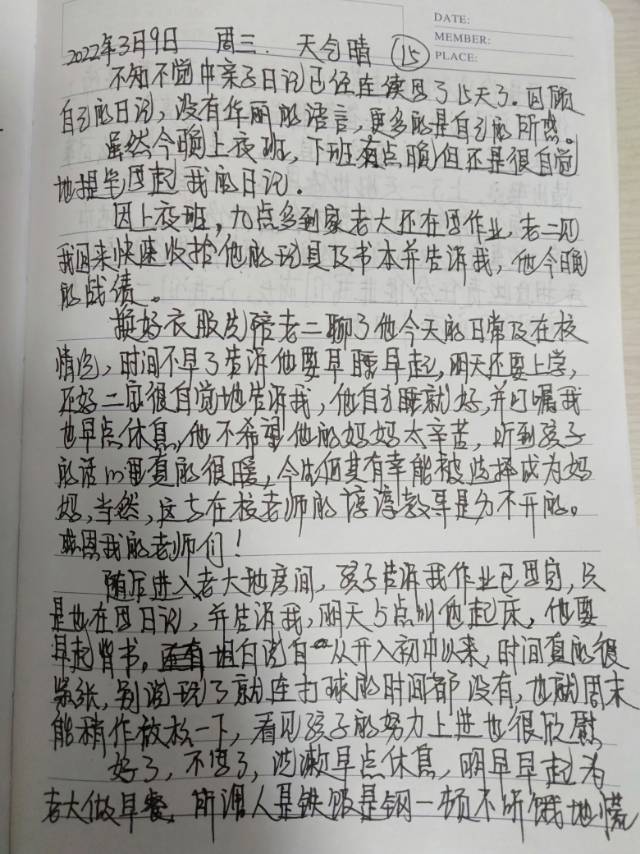 DATE:
MEMBER:
PLACE:
2022年3月9日 周三. 天气晴 (15)
不知不觉中亲子日记已经连续写了15天了.回顾
自己的日记,没有华丽的语言,更多的是自己的所感。
虽然今晚上夜班,下班有点晚但还是很自觉
地提笔写起我的日记.
因上夜班,九点多到家老大还在写作业,老二见
我回来快速收拾他的玩具及书本并告诉我,他今晚
的战绩。
换好衣服先陪老二聊了他今天的日常及在校
情况,时间不早了告诉他要早睡早起,明天还要上学,
还好二宝很自觉地告诉我,他自己睡就好,并叮嘱我
也早点休息,他不希望他的妈妈太辛苦,听到孩子
的话心里真的很暖,今生何其有幸能被选择成为妈
妈,当然,这与在校老师的谆谆教导是分不开的。
感恩我的老师们!
随后进入老大地房间,孩子告诉我作业已写完,只
是他在写日记,并告诉我,明天5点叫他起床,他要
早起背书。坦白说自从开入初中以来,时间真的很
紧张,别说玩了就连打球的时间都没有,也就周末
能稍作放松一下,看见孩子的努力上进也很欣慰
好了,不写了,洗漱早点休息,明早早起为
老大做早餐.所谓人是铁饭是钢一顿不吃饿地慌